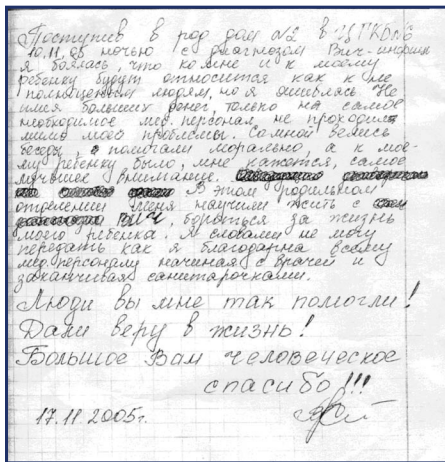 Поступив в род дом №2 в ЦГКБ №6
10.11.05 ночью с диагнозом Вич-инфекция
я боялась, что ко мне и к моему
ребенку будут относится как к не
полноценным людям, но я ошиблась. Не
имея больших денег, только на самое
необходимое мед. персонал, не проходил
мимо моей проблемы. Со мной велись
беседы, помогали морально, а к мо-
ему ребенку, было, мне кажется, самое
лучшее внимание.
В этом родильном
отделении меня научили жить с
ВИЧ, бороться за жизнь
моего ребенка. Я словами не могу
передать как я благодарна всему
мед персоналу, начиная с врачей и
заканчивая санитарочками.
Люди вы мне так помогли!
Дали веру в жизнь!
Большое Вам человеческое
спасибо!!!
17.11.2005г.